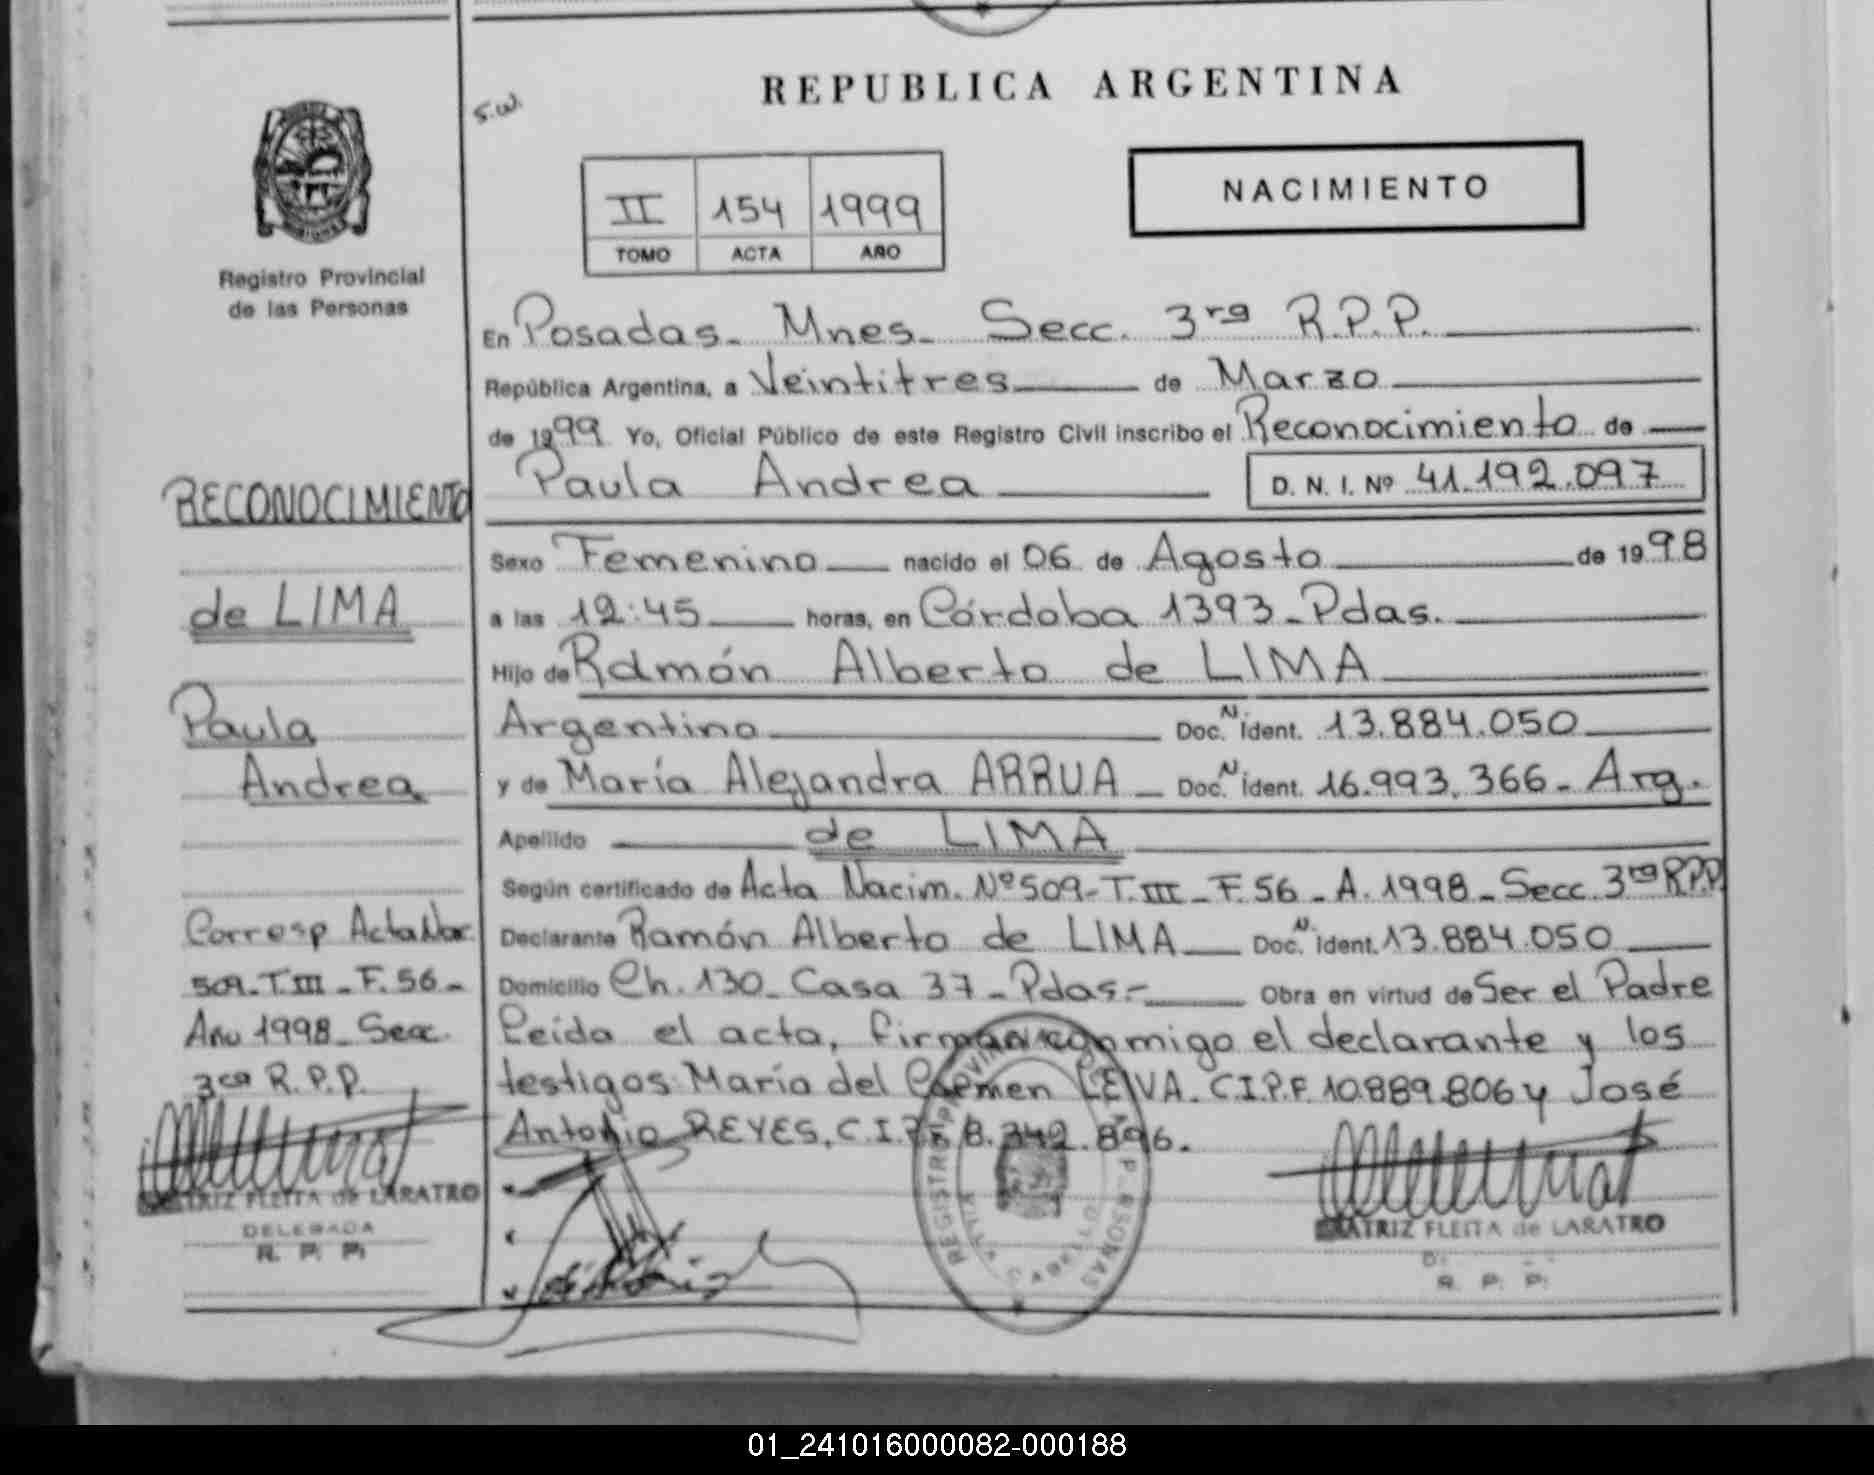 REPUBLICA ARGENTINA
s.w.
NACIMIENTO
II 154 1999
TOMO ACTA AÑO
Registro Provincial
de las Personas
En Posadas - Mnes - Secc. 3ra R.P.P.
República Argentina, a Veintitres de Marzo
de 1999 Yo, Oficial Público de este Registro Civil inscribo el Reconocimiento de
Paula Andrea D. N. I. Nº 41.192.097
Sexo Femenino nacido el 06 de Agosto de 1998
a las 12:45 horas, en Córdoba 1393 - Pdas.
Hijo de Ramón Alberto de LIMA
Argentino Doc. N. ident. 13.884.050
y de María Alejandra ARRUA Doc. N. ident. 16.993.366 - Arg.
Apellido de LIMA
Según certificado de Acta Nacim. Nº 509 - T. III - F. 56 - A. 1998 - Secc. 3ra R.P.P.
Declarante Ramón Alberto de LIMA Doc. N. ident. 13.884.050
Domicilio Ch. 130 - Casa 37 - Pdas. - Obra en virtud de Ser el Padre
Leída el acta, firman conmigo el declarante y los
testigos: María del Carmen LEIVA. C.I.P.F. 10.889.806 y José
Antonio REYES, C.I. 8.342.896.
RECONOCIMIENTO
de LIMA
Paula
Andrea
Corresp Acta Nac.
509 - T. III - F. 56 -
Año 1998 - Secc.
3ra R.P.P.
BEATRIZ FLEITA de LARATRO
DELEGADA
R. P. P.
BEATRIZ FLEITA de LARATRO
R. P. P.
01_241016000082-000188